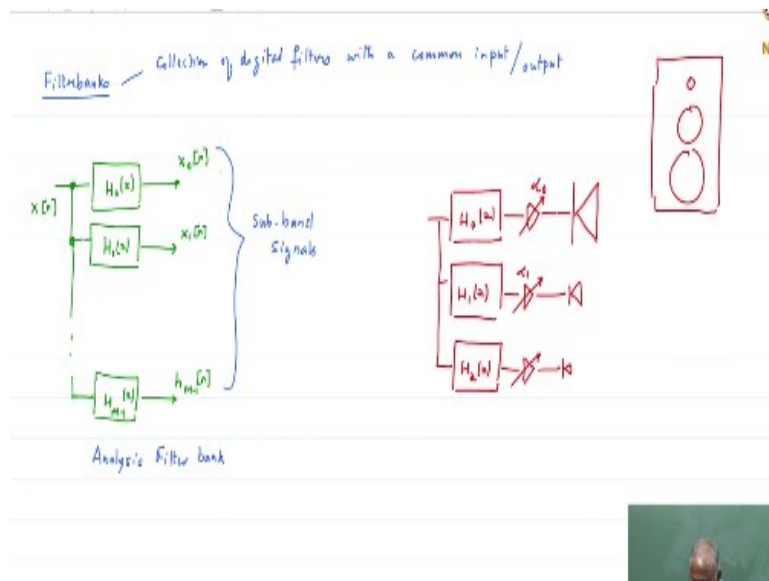 Filterbanks — Collection of digital filters with a common input/output
x[n]
H₀(z)
x₀[n]
H₁(z)
x₁[n]
H_M-1(z)
h_M-1[n]
Sub-band
signals
Analysis Filter bank
H₀(z)
α₀
H₁(z)
α₁
H₂(z)
N